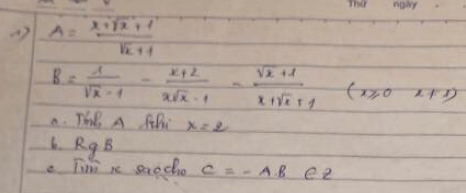 Thứ ngày
1) A = \frac{x+\sqrt{x}+1}{\sqrt{x}+1}
B = \frac{1}{\sqrt{x}-1} - \frac{x+2}{x\sqrt{x}-1} - \frac{\sqrt{x}+1}{x+\sqrt{x}+1} (x ≥ 0 x ≠ 1)
a. Tính A khi x = 2
b. Rg B
c. Tìm x sao cho C = -A.B ∈ Z